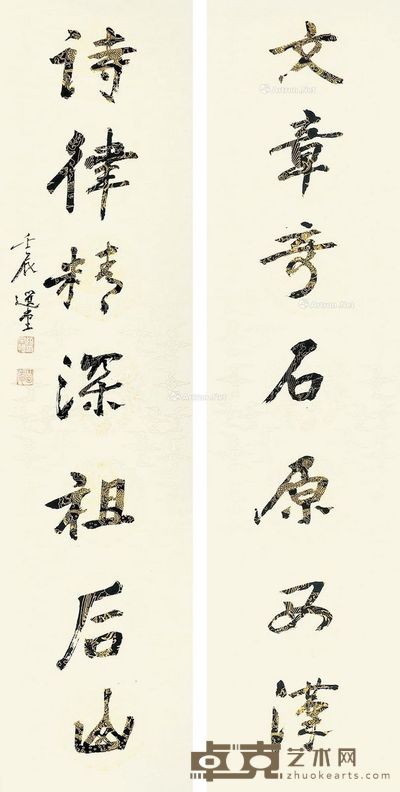 文章奇石原西漢
詩律精深祖后山
壬辰 選堂
Artron.Net
Artron.Net
Artron.Net
Artron.Net
卓克艺术网
zhuokearts.com